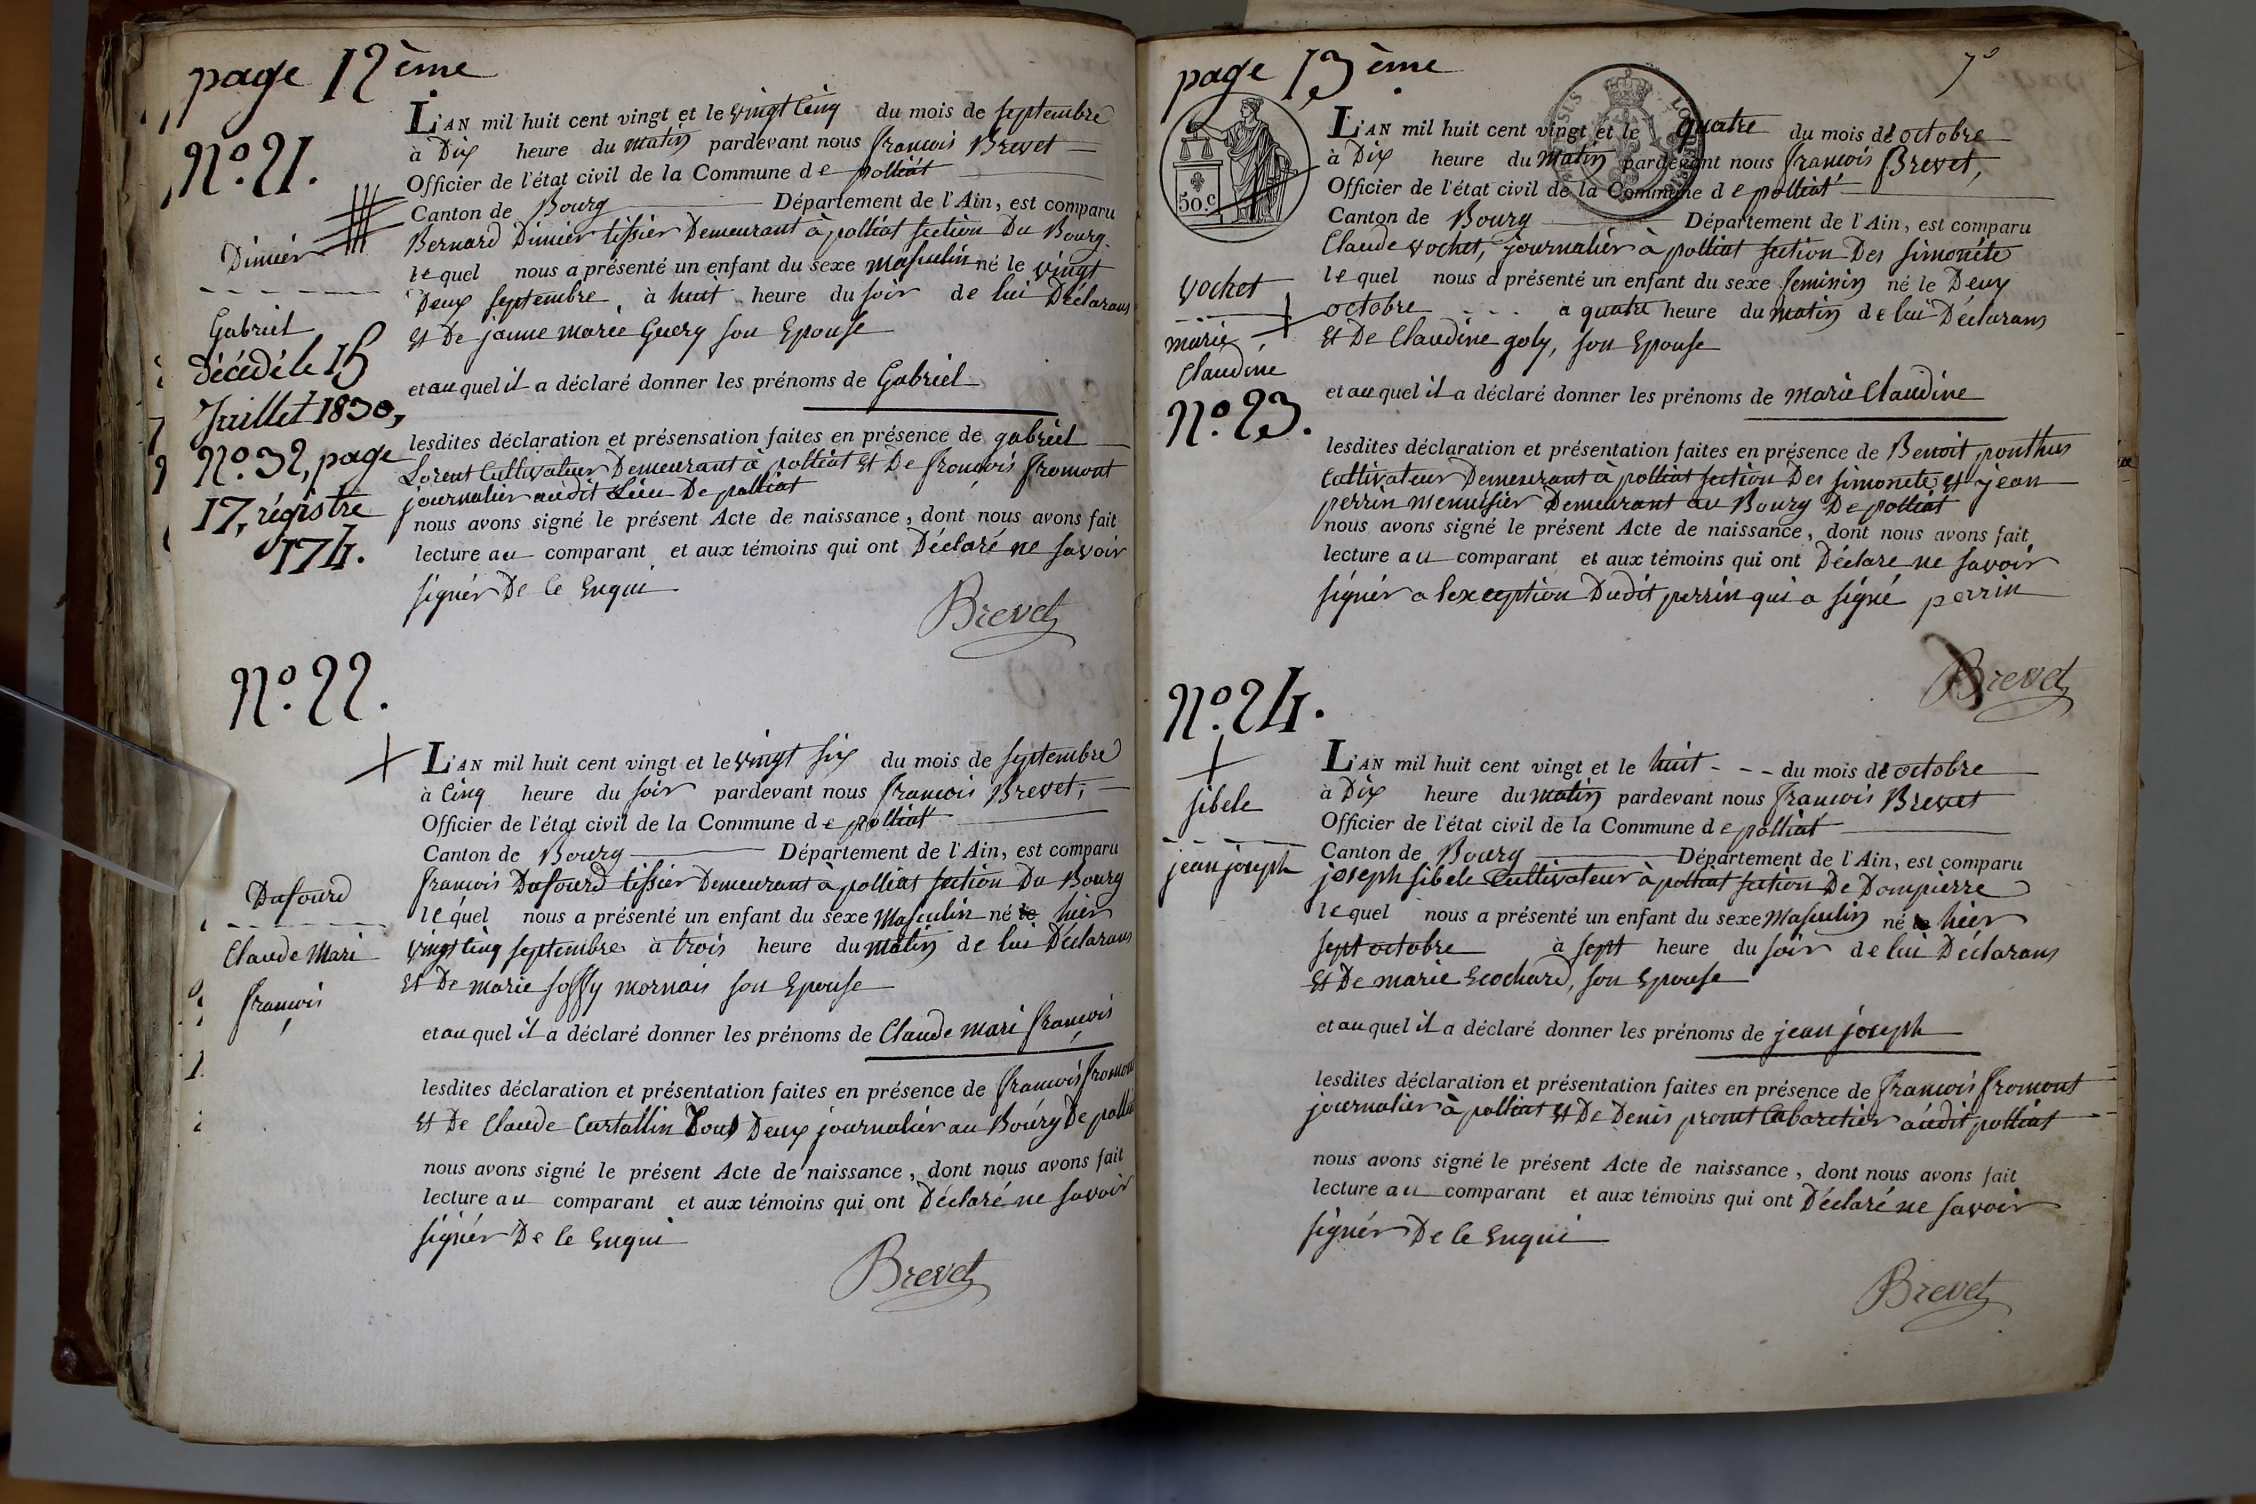 page 12ème
N.º 21.
Dimier
Gabriel
décédé le 15
Juillet 1830,
Nº. 32, page
17, régistre
174.
L'AN mil huit cent vingt et le vingt Cinq du mois de septembre
à Dix heure du matin pardevant nous françois Brevet
Officier de l'état civil de la Commune de polliat
Canton de Bourg Département de l'Ain, est comparu
Bernard Dimier tissier Demeurant à polliat section Du Bourg
lequel nous a présenté un enfant du sexe masculin né le vingt
Deux septembre à huit heure du soir de lui Déclarans
Et De janne marie Guery son Epouse
et au quel il a déclaré donner les prénoms de Gabriel
lesdites déclaration et présensation faites en présence de gabriel
Lorent Cultivateur Demeurant à polliat Et De françois fromont
journalier audit Lieu De polliat
nous avons signé le présent Acte de naissance, dont nous avons fait
lecture au comparant et aux témoins qui ont Déclaré ne savoir
signér De ce Enqui
Brevet
N.º 22.
Dufourd
Claude Mari
françois
L'AN mil huit cent vingt et le vingt six du mois de septembre
à Cinq heure du soir pardevant nous françois Brevet,
Officier de l'état civil de la Commune de polliat
Canton de Bourg Département de l'Ain, est comparu
françois Dufourd tissier Demeurant à polliat section Du Bourg
lequel nous a présenté un enfant du sexe Masculin né le hier
vingt Cinq septembre à trois heure du matin de lui Déclarans
Et De marie soffy mornais son Epouse
et au quel il a déclaré donner les prénoms de Claude mari françois
lesdites déclaration et présentation faites en présence de françois fromont
Et De Claude Curtallin Tous Deux journalier au Bourg De polliat
nous avons signé le présent Acte de naissance, dont nous avons fait
lecture au comparant et aux témoins qui ont Déclaré ne savoir
signér De ce Enqui
Brevet
page 13ème
7º
50.c
vochet
marie
Claudine
N.º 23.
L'AN mil huit cent vingt et le quatre du mois de octobre
à Dix heure du Matin pardevant nous françois Brevet,
Officier de l'état civil de la Commune de polliat
Canton de Bourg Département de l'Ain, est comparu
Claude vochet, journalier à polliat section Des simonéte
lequel nous a présenté un enfant du sexe feminin né le Deux
octobre à quatre heure du matin de lui Déclarans
Et De Claudine goly, son Epouse
et au quel il a déclaré donner les prénoms de marie Claudine
lesdites déclaration et présentation faites en présence de Benoit ponthus
Cultivateur Demeurant à polliat section Des simonéte et jean
perrin menuisier Demeurant au Bourg De polliat
nous avons signé le présent Acte de naissance, dont nous avons fait
lecture au comparant et aux témoins qui ont Déclare ne savoir
signér a lexception Dudit perrin qui a signé perrin
Brevet
N.º 24.
sibele
jean joseph
L'AN mil huit cent vingt et le huit du mois de octobre
à Dix heure du matin pardevant nous françois Brevet
Officier de l'état civil de la Commune de polliat
Canton de Bourg Département de l'Ain, est comparu
joseph sibele Cultivateur à polliat section De Dompierre
lequel nous a présenté un enfant du sexe Masculin né le hier
sept octobre à sept heure du soir de lui Déclarans
Et De marie Ecochard, son Epouse
et au quel il a déclaré donner les prénoms de jean joseph
lesdites déclaration et présentation faites en présence de françois fromont
journalier à polliat Et De Denis prout Cabaretier audit polliat
nous avons signé le présent Acte de naissance, dont nous avons fait
lecture au comparant et aux témoins qui ont Déclaré ne savoir
signér De ce Enqui
Brevet